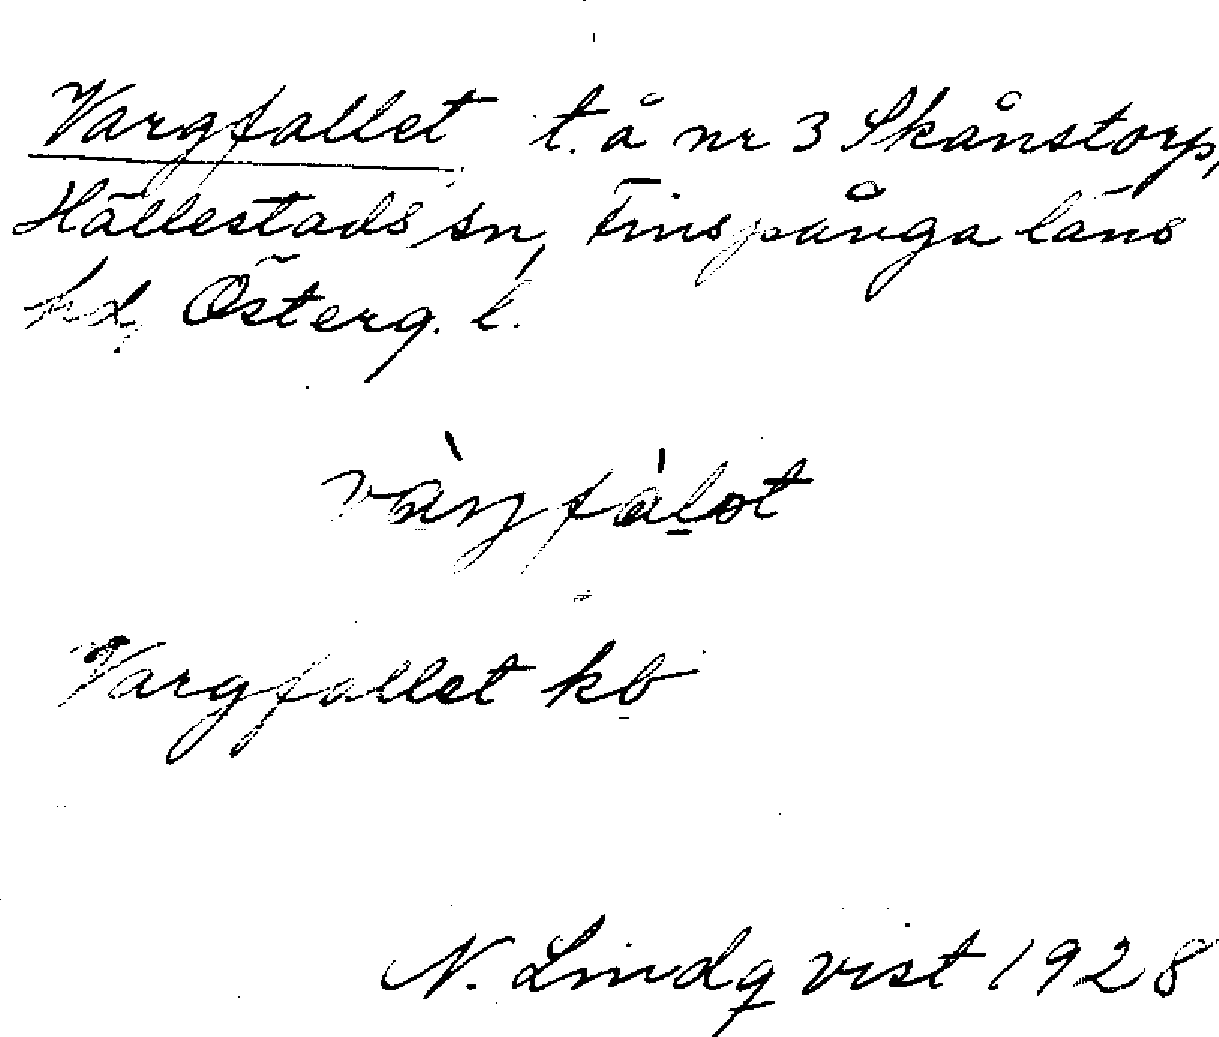 Vargfallet t. å nr 3 Skånstorp,
Hällestads sn, Finspånga läns
hd, Österg. l.
vàrjfàlət
Vargfallet kb
N. Lindqvist 1928